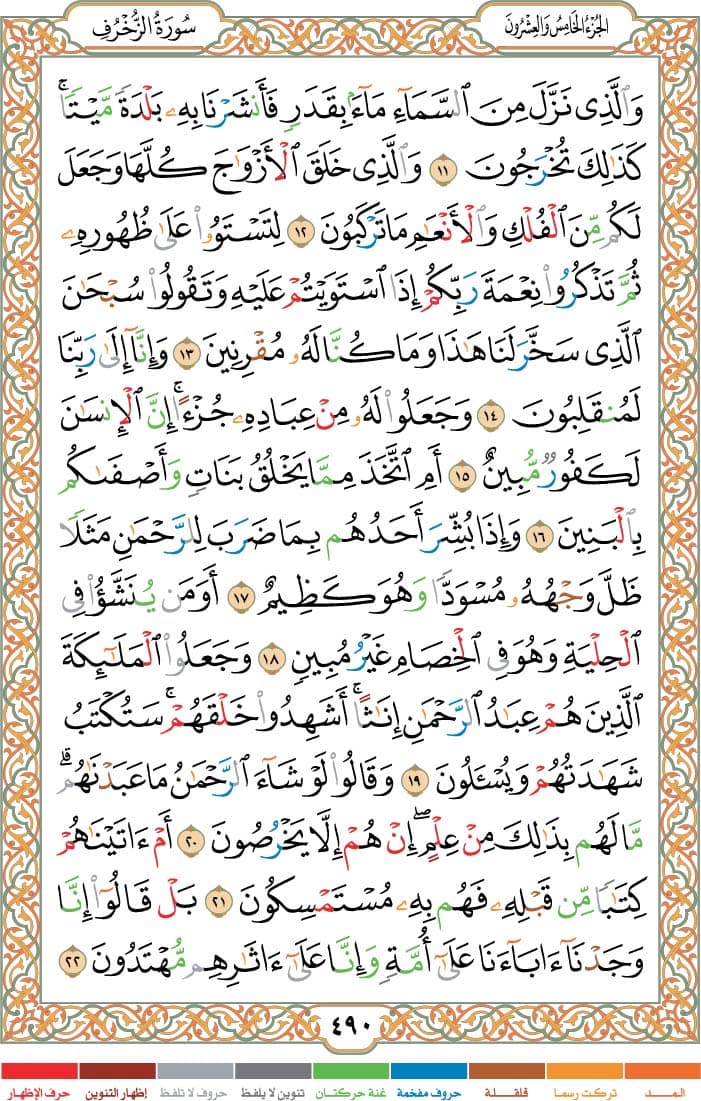 الجزء الخامس والعشرون
سورة الزخرف
وَالَّذِى نَزَّلَ مِنَ السَّمَآءِ مَآءًۢ بِقَدَرٍ فَأَنشَرْنَا بِهِۦ بَلْدَةً مَّيْتًا ۚ
كَذَٰلِكَ تُخْرَجُونَ ١١ وَالَّذِى خَلَقَ الْأَزْوَٰجَ كُلَّهَا وَجَعَلَ
لَكُم مِّنَ الْفُلْكِ وَالْأَنْعَٰمِ مَا تَرْكَبُونَ ١٢ لِتَسْتَوُۥا۟ عَلَىٰ ظُهُورِهِۦ
ثُمَّ تَذْكُرُوا۟ نِعْمَةَ رَبِّكُمْ إِذَا اسْتَوَيْتُمْ عَلَيْهِ وَتَقُولُوا۟ سُبْحَٰنَ
الَّذِى سَخَّرَ لَنَا هَٰذَا وَمَا كُنَّا لَهُۥ مُقْرِنِينَ ١٣ وَإِنَّآ إِلَىٰ رَبِّنَا
لَمُنقَلِبُونَ ١٤ وَجَعَلُوا۟ لَهُۥ مِنْ عِبَادِهِۦ جُزْءًا ۚ إِنَّ الْإِنسَٰنَ
لَكَفُورٌ مُّبِينٌ ١٥ أَمِ اتَّخَذَ مِمَّا يَخْلُقُ بَنَاتٍ وَأَصْفَىٰكُم
بِالْبَنِينَ ١٦ وَإِذَا بُشِّرَ أَحَدُهُم بِمَا ضَرَبَ لِلرَّحْمَٰنِ مَثَلًا
ظَلَّ وَجْهُهُۥ مُسْوَدًّا وَهُوَ كَظِيمٌ ١٧ أَوَمَن يُنَشَّؤُا۟ فِى
الْحِلْيَةِ وَهُوَ فِى الْخِصَامِ غَيْرُ مُبِينٍ ١٨ وَجَعَلُوا۟ الْمَلَٰٓئِكَةَ
الَّذِينَ هُمْ عِبَٰدُ الرَّحْمَٰنِ إِنَٰثًا ۚ أَشَهِدُوا۟ خَلْقَهُمْ ۚ سَتُكْتَبُ
شَهَٰدَتُهُمْ وَيُسْـَٔلُونَ ١٩ وَقَالُوا۟ لَوْ شَآءَ الرَّحْمَٰنُ مَا عَبَدْنَٰهُم ۗ
مَّا لَهُم بِذَٰلِكَ مِنْ عِلْمٍ ۖ إِنْ هُمْ إِلَّا يَخْرُصُونَ ٢٠ أَمْ ءَاتَيْنَٰهُمْ
كِتَٰبًا مِّن قَبْلِهِۦ فَهُم بِهِۦ مُسْتَمْسِكُونَ ٢١ بَلْ قَالُوٓا۟ إِنَّا
وَجَدْنَآ ءَابَآءَنَا عَلَىٰٓ أُمَّةٍ وَإِنَّا عَلَىٰٓ ءَاثَٰرِهِم مُّهْتَدُونَ ٢٢
٤٩٠
المــــد تركت رسما قلقــلة حروف مفخمة غنة حركتان تنوين لا يلفظ حروف لا تلفظ إظهار التنوين حرف الإظهار